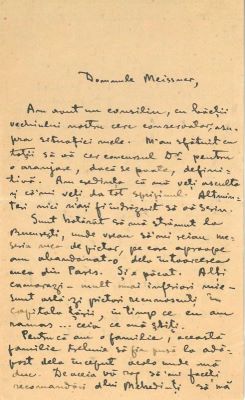 Domnule Meissner,
Am avut un consiliu, cu băeții
vechiului nostru cerc conservator, asu-
pra situației mele. M'au sfătuit cu
toții să vă cer concursul Dv pentru
o aranjare, dacă se poate, defini-
tivă. Am credința că mă veți asculta
și că-mi veți da tot sprijinul. Altmin-
teri nici n'ași fi îndrăznit să vă scriu.
Sunt hotărât să mă strămut la
București, unde vreau să-mi reiau me-
seria mea de pictor, pe care aproape
am abandonat-o dela întoarcerea
mea din Paris. Și e păcat. Alți
camarazi mult mai inferiori mie
sunt astăzi pictori recunoscuți în
capitala țării, în timp ce eu am
rămas... ceia ce mă știți.
Pentru că am o familie, această
familie trebuia să fie pusă la adă-
post dela început acolo unde mă
duc. De aceia vă rog să-mi faceți
recomandări dlui Mehedinți să mă